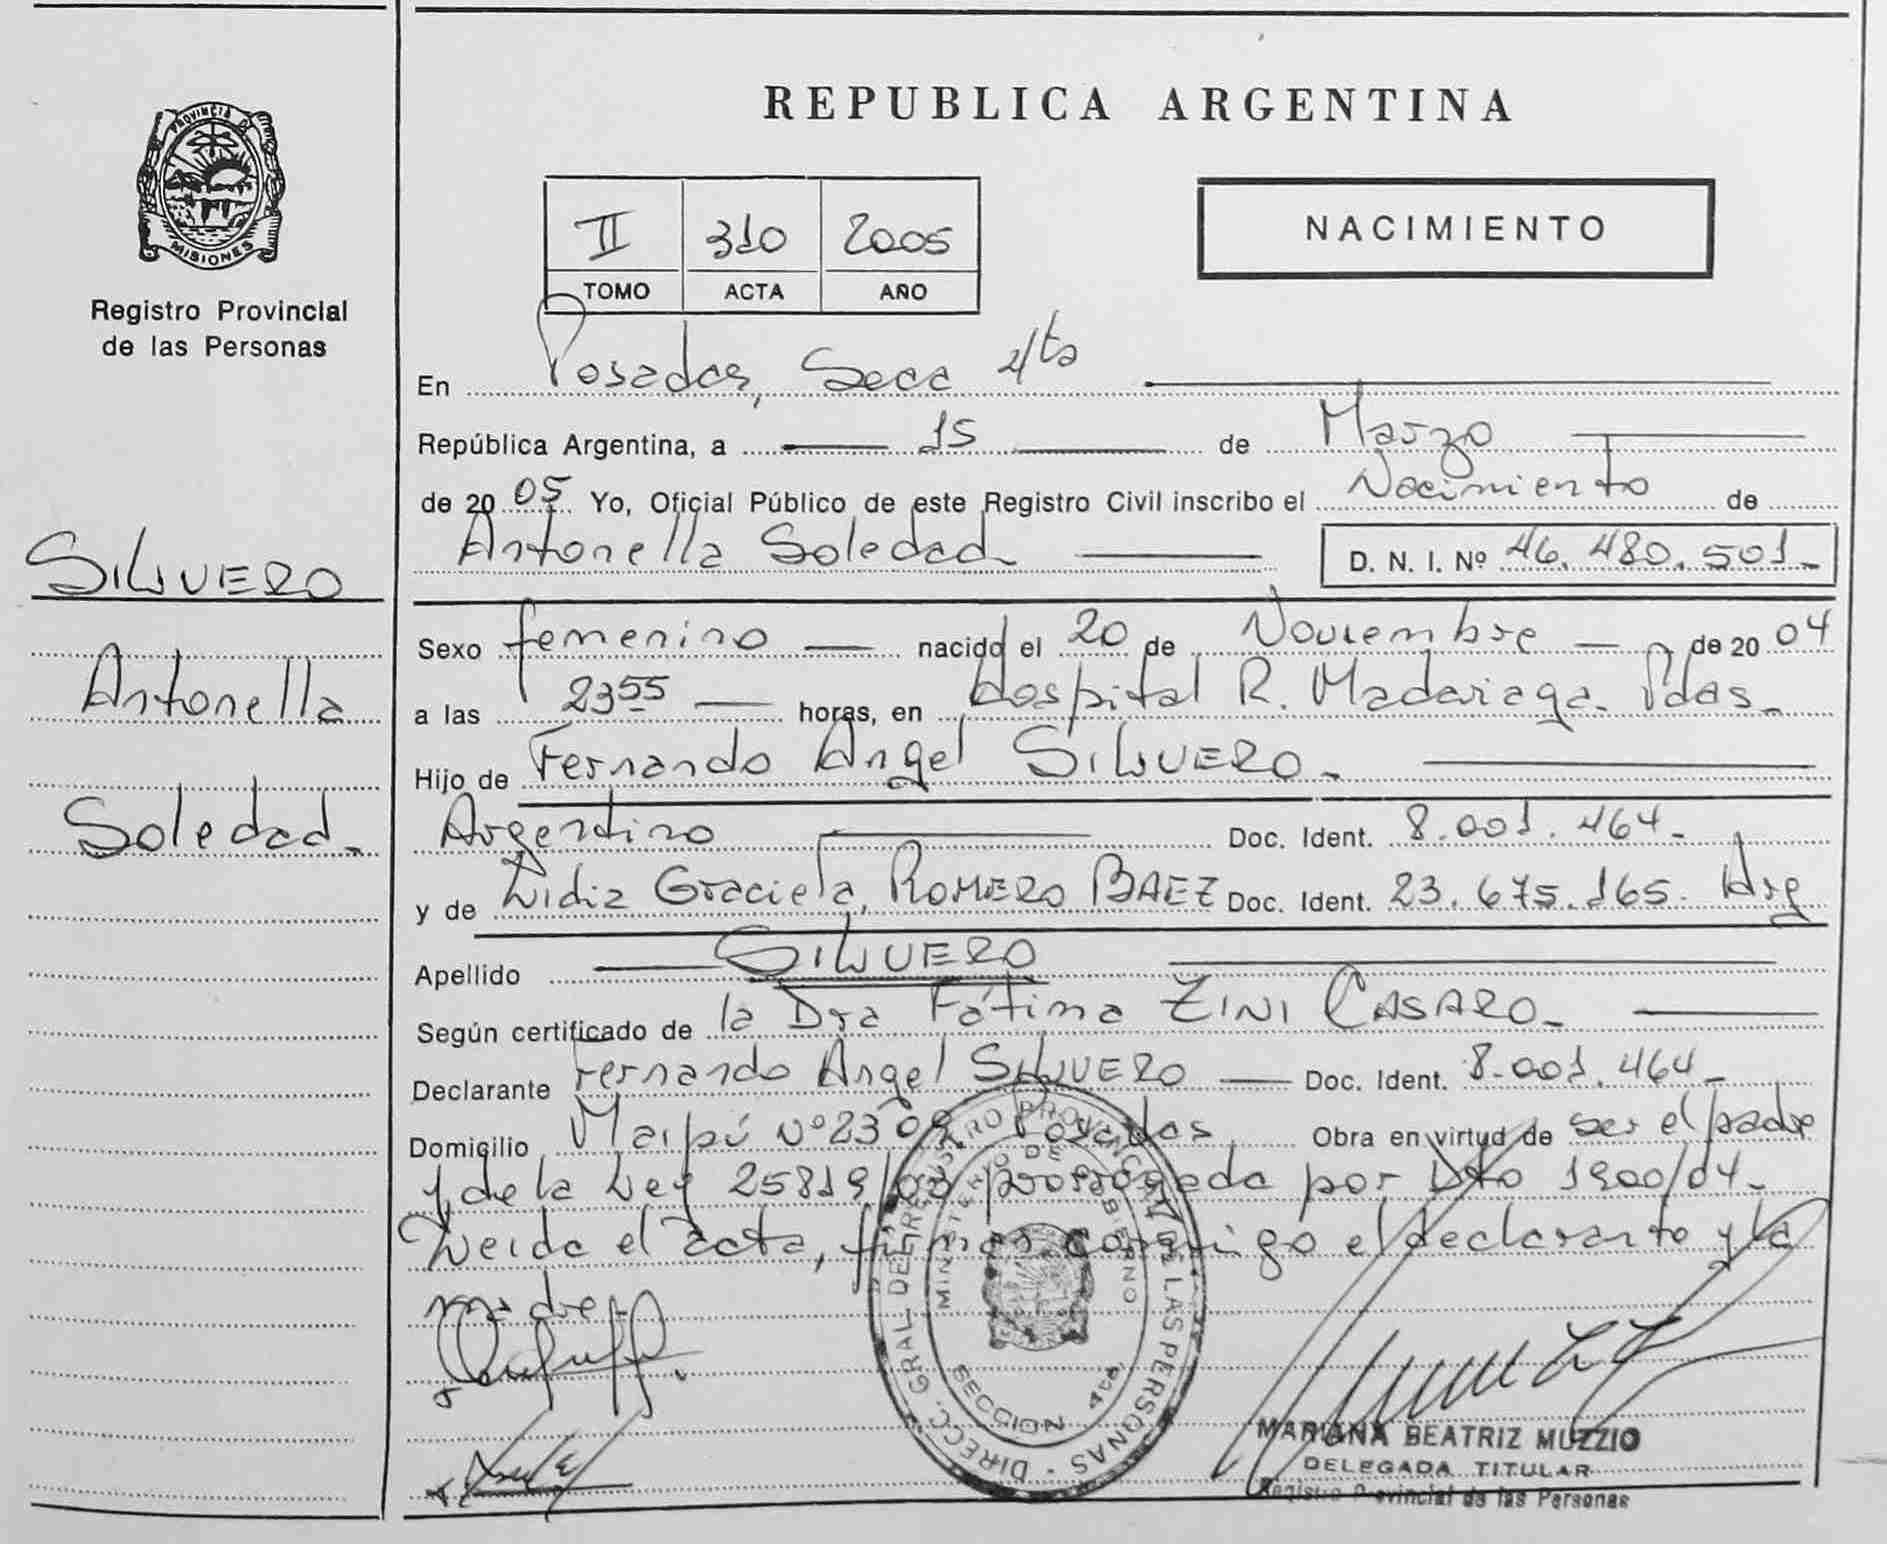 REPUBLICA ARGENTINA
PROVINCIA DE
MISIONES
Registro Provincial
de las Personas
SILUVERO
Antonella
Soledad.
II 310 2005
TOMO ACTA AÑO
NACIMIENTO
En Posadas, Secc 4ta
República Argentina, a 15 de Marzo
de 2005 Yo, Oficial Público de este Registro Civil inscribo el Nacimiento de
Antonella Soledad D. N. I. Nº 46.480.501.-
Sexo femenino nacido el 20 de Noviembre de 2004
a las 23 55 horas, en Hospital R. Madariaga. Pdas.
Hijo de Fernando Angel SILUVERO.
Argentino Doc. Ident. 8.001.464.-
y de Lidia Graciela, ROMERO BAEZ Doc. Ident. 23.675.165. Arg
Apellido SILUVERO
Según certificado de la Dra Fátima ZINI CASARO.
Declarante Fernando Angel SILUVERO Doc. Ident. 8.001.464.-
Domicilio Maipú Nº 2309 Posadas Obra en virtud de ser el padre
y de la Ley 25819/03 prorrogada por Dto 1900/04.-
Leida el acta, firman conmigo el declarante y la
madre
DIRECC. GRAL. DEL REGISTRO PROVINCIAL DE LAS PERSONAS
MINISTERIO DE GOBIERNO
SECCION 4ta
MARIANA BEATRIZ MUZZIO
DELEGADA TITULAR
Registro Provincial de las Personas